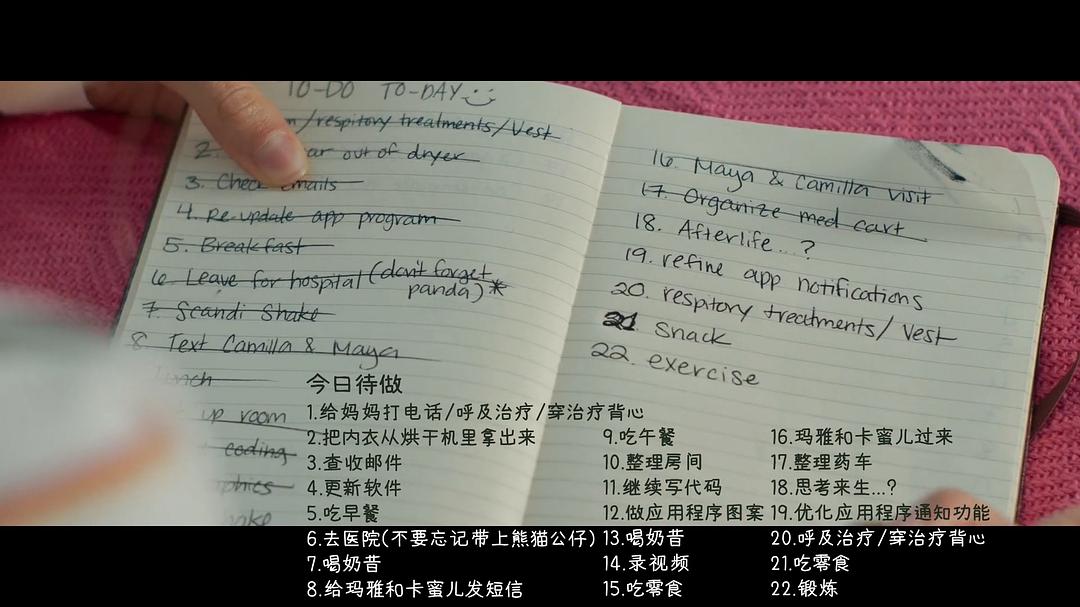 TO-DO TO-DAY
/respitory treatments/Vest
2. out of dryer
3. Check emails
4. Re-update app program
5. Breakfast
6. Leave for hospital (don't forget
panda) *
7. Scandi Shake
8. Text Camilla & Maya
up room
coding
16. Maya & Camilla visit
17. Organize med cart
18. Afterlife...?
19. refine app notifications
20. respitory treatments/ Vest
21 Snack
22. exercise
今日待做
1.给妈妈打电话/呼及治疗/穿治疗背心
2.把内衣从烘干机里拿出来
3.查收邮件
4.更新软件
5.吃早餐
6.去医院(不要忘记带上熊猫公仔)
7.喝奶昔
8.给玛雅和卡蜜儿发短信
9.吃午餐
10.整理房间
11.继续写代码
12.做应用程序图案
13.喝奶昔
14.录视频
15.吃零食
16.玛雅和卡蜜儿过来
17.整理药车
18.思考来生...?
19.优化应用程序通知功能
20.呼及治疗/穿治疗背心
21.吃零食
22.锻炼